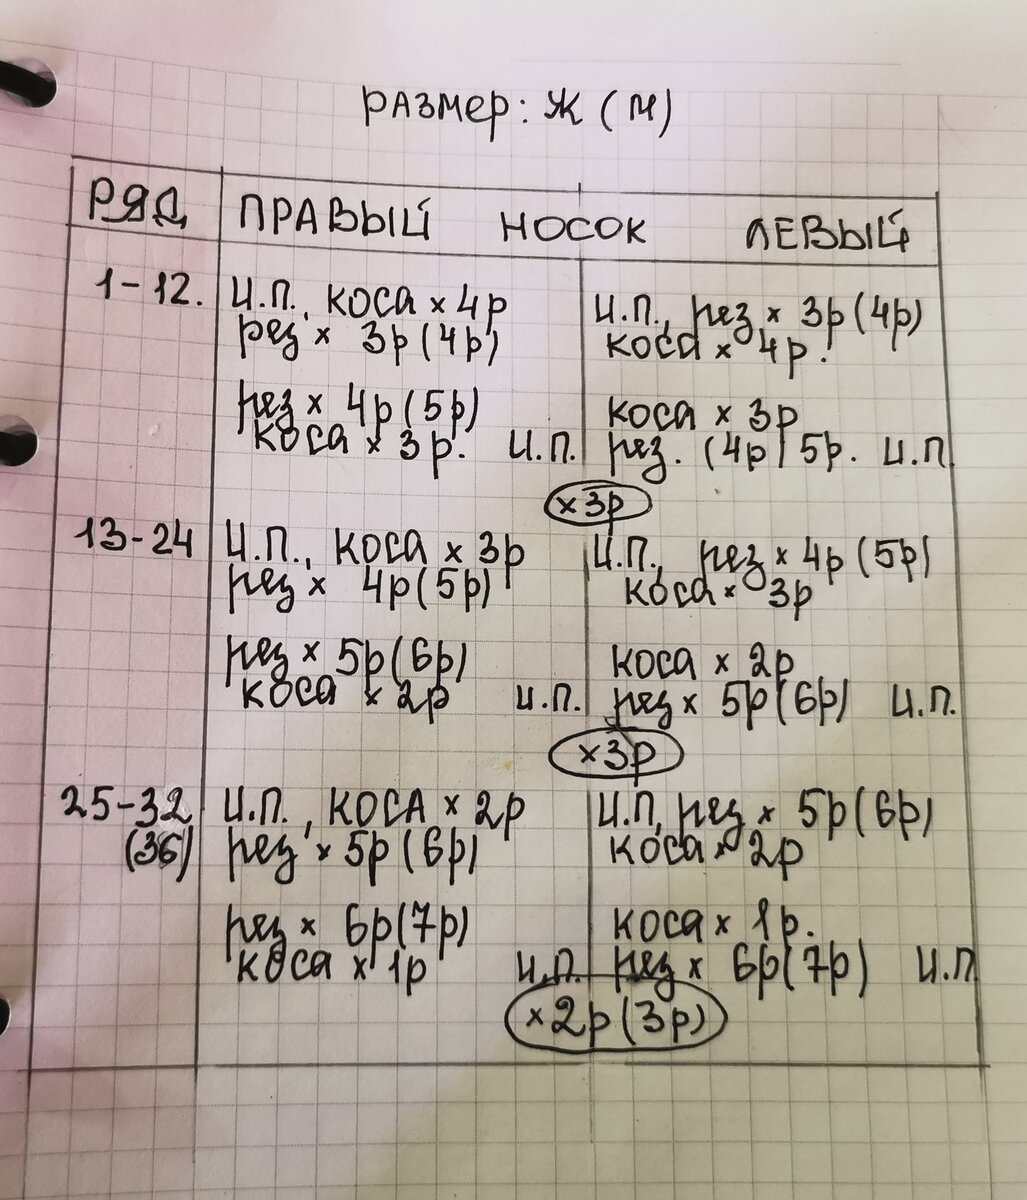 размер: Ж (М)
РЯД ПРАВЫЙ НОСОК ЛЕВЫЙ
1-12. И.П., коса × 4р И.П., рез × 3р (4р)
рез × 3р (4р) коса × 4р.
рез × 4р (5р) коса × 3р
коса × 3р. И.П. рез. (4р) 5р. И.П.
×3р
13-24 И.П., коса × 3р И.П., рез × 4р (5р)
рез × 4р (5р) коса × 3р
рез × 5р (6р) коса × 2р
коса × 2р И.П. рез × 5р (6р) И.П.
×3р
25-32 И.П., коса × 2р И.П, рез × 5р (6р)
(36) рез × 5р (6р) коса × 2р
рез × 6р (7р) коса × 1р.
коса × 1р И.П. рез × 6р (7р) И.П
×2р (3р)